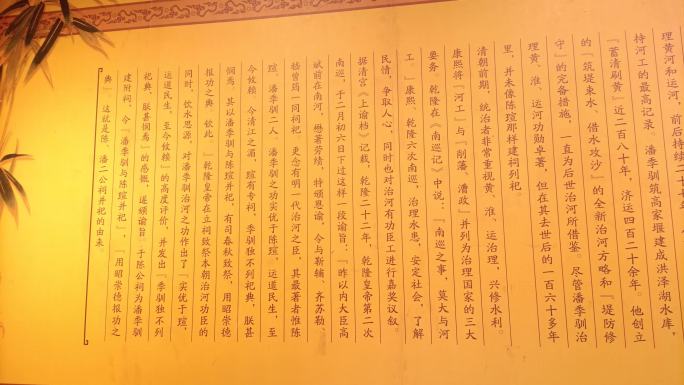 理黄河和运河，前后持续二十
持河工的最高记录。潘季驯筑高家堰建成洪泽湖水库，
『蓄清刷黄』近二百八十年，济运四百二十余年。他创立
的『筑堤束水，借水攻沙』的全新治河方略和『堤防修
守』的完备措施，一直为后世治河所借鉴。尽管潘季驯治
理黄、淮、运河功勋卓著，但在其去世后的一百六十多年
里，并未像陈瑄那样建祠列祀。
清朝前期，统治者非常重视黄、淮、运治理，兴修水利。
康熙将『河工』与『削藩、漕政』并列为治理国家的三大
要务。乾隆在《南巡记》中说：『南巡之事，莫大与河
工。』康熙、乾隆六次南巡，治理水患，安定社会，了解
民情，争取人心，同时也对治河有功臣工进行嘉奖议叙。
据清宫《上谕档》记载，乾隆二十二年，乾隆皇帝第二次
南巡，于二月初六日下过这样一段谕旨：『昨以内大臣高
斌前在南河，懋著劳绩，特颁恩谕，令与靳辅、齐苏勒、
嵇曾筠一同祠祀，更念有明一代治河之臣，其最著者惟陈
瑄、潘季驯二人，潘季驯之功实优于陈瑄，运道民生，至
今攸赖。今清江之湄，瑄有专祠，季驯独不列祀典，朕甚
悯焉，其以潘季驯与陈瑄并祀，有司春秋致祭，用昭崇德
报功之典，钦此。』乾隆皇帝在立祠致祭本朝治河功臣的
同时，饮水思源，对潘季驯治河之功作出了『实优于瑄，
运道民生，至今攸赖』的高度评价，并发出『季驯独不列
祀典，朕甚悯焉』的感慨，遂颁谕旨：于陈公祠为潘季驯
建附祠，令『潘季驯与陈瑄并祀』，『用昭崇德报功之
典』。这就是陈、潘二公祠并祀的由来。